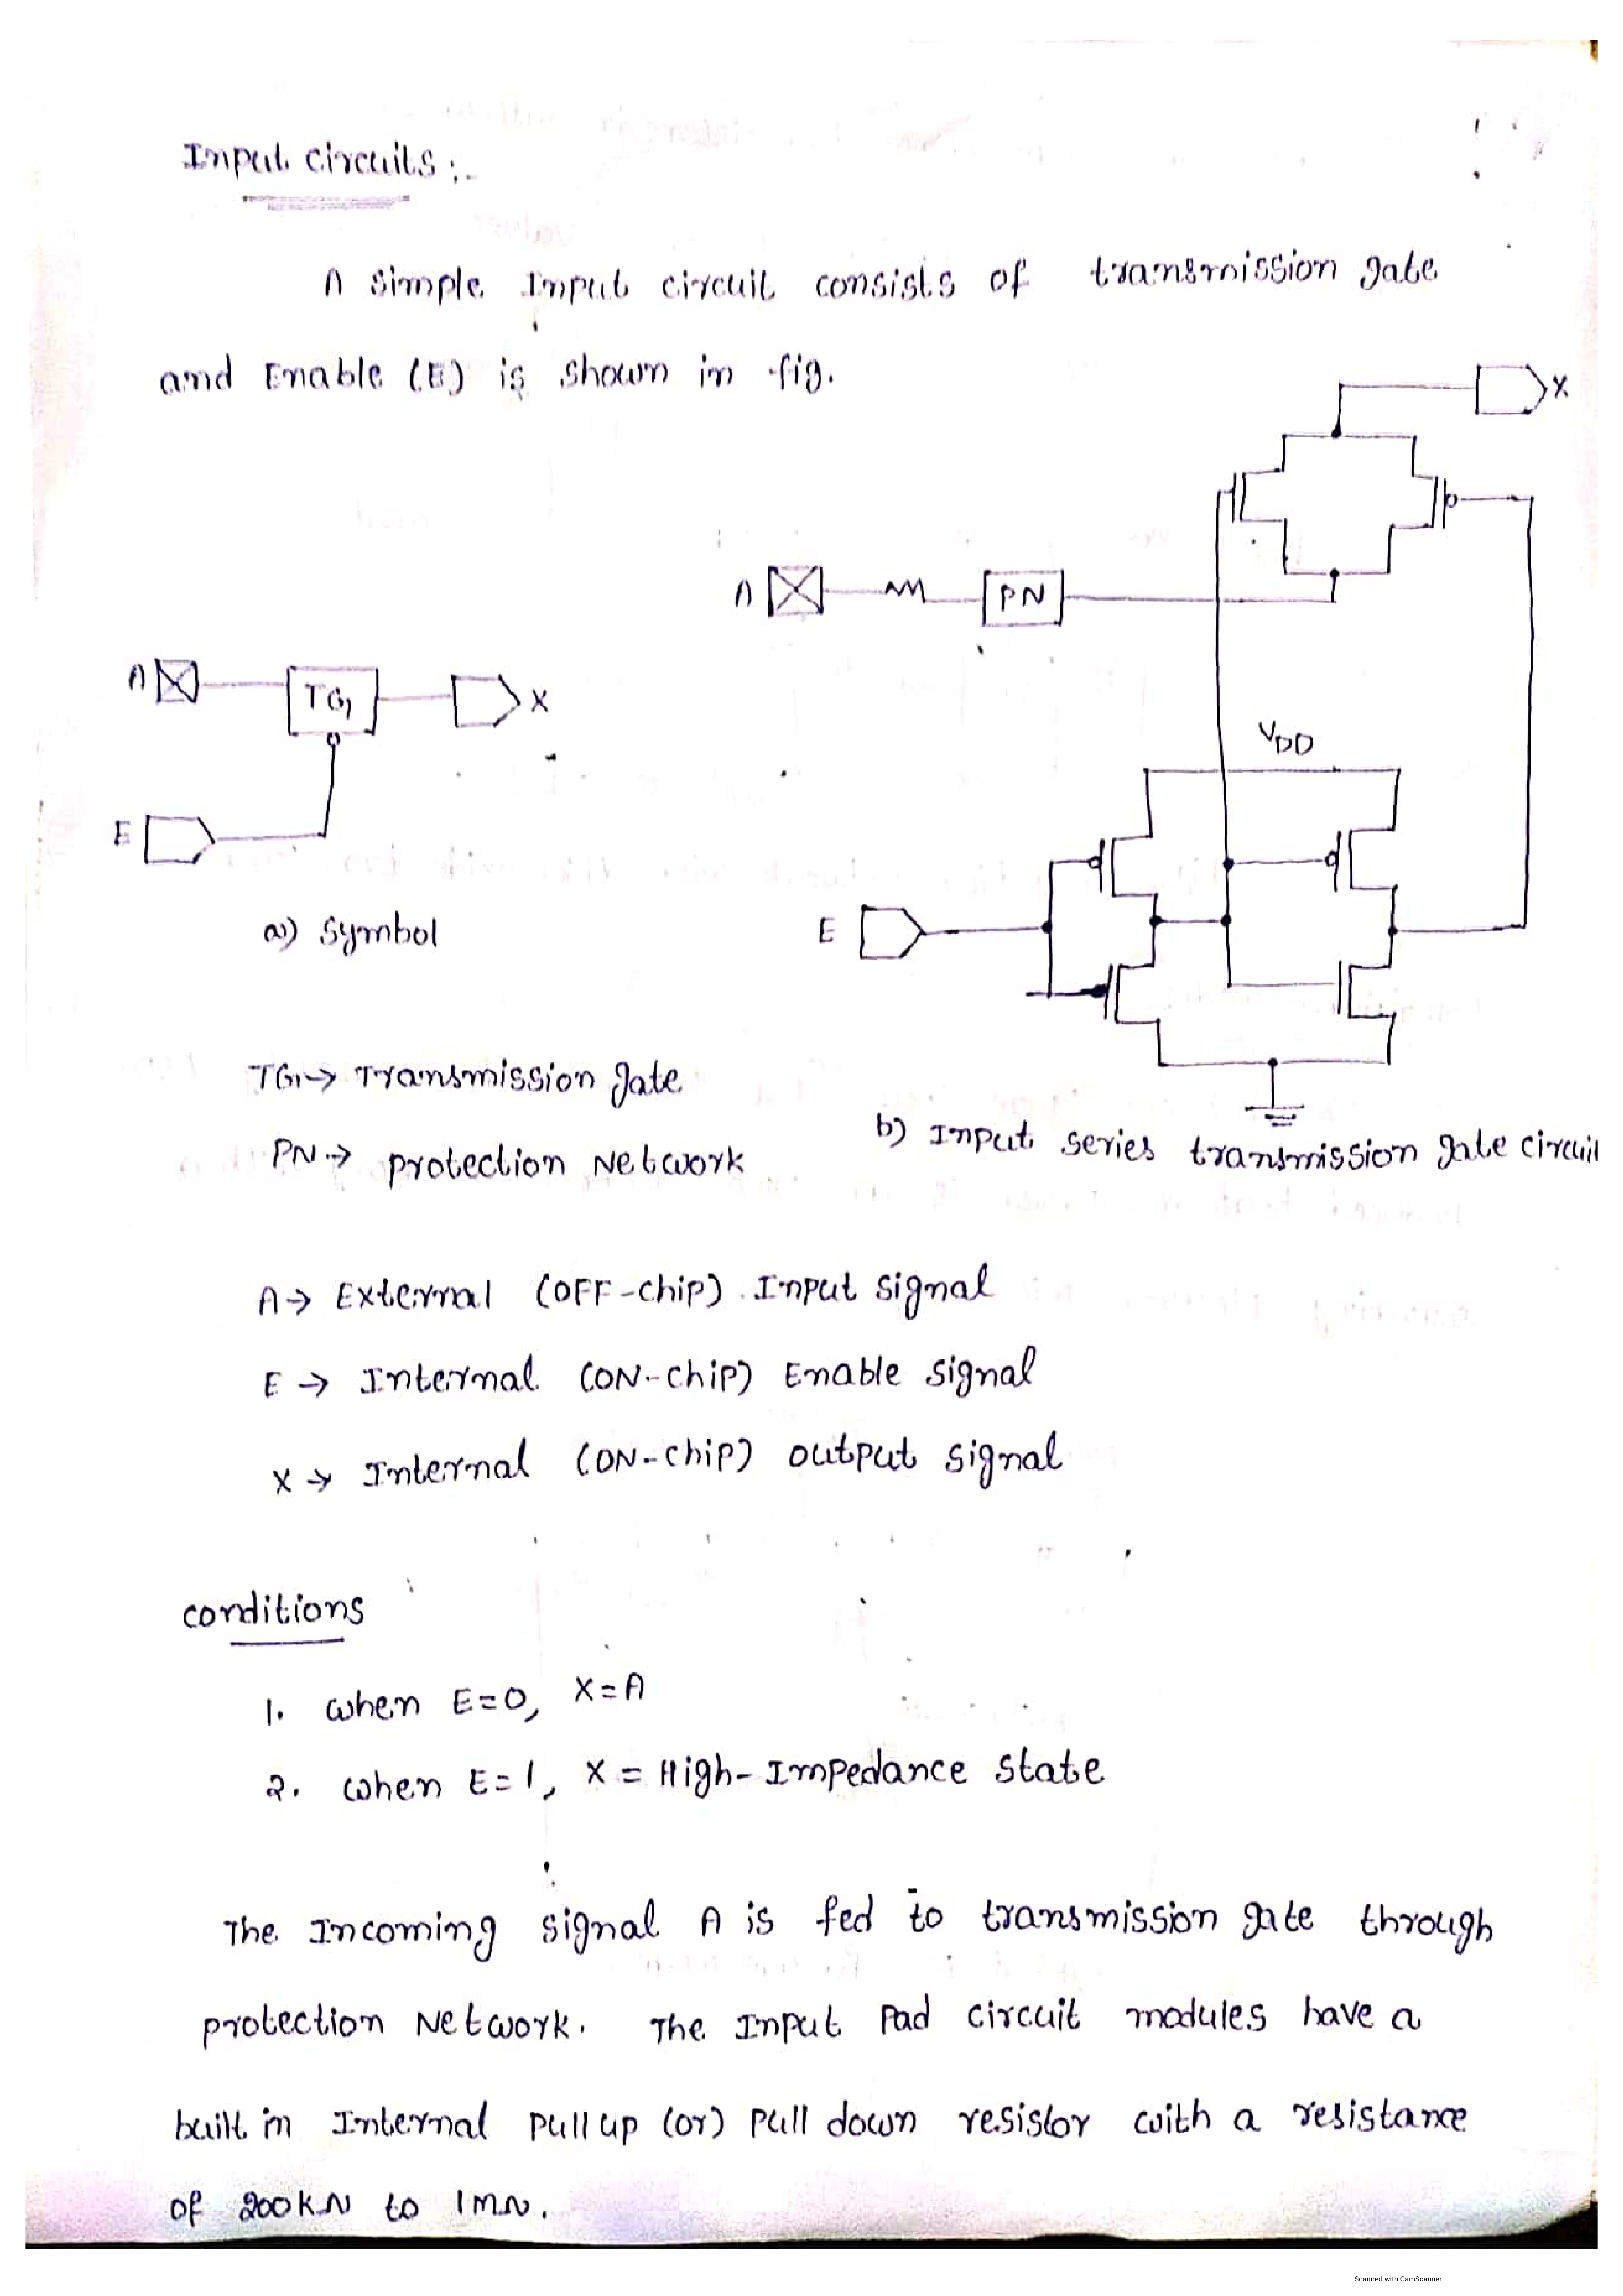 Input circuits :-
A simple Input circuit consists of transmission gate
and Enable (E) is shown in fig.
X
A PN
A TG X
VDD
E
E
a) Symbol
TG → Transmission gate
b) Input series transmission gate circuit
PN → protection Network
A → External (OFF-chip) Input signal
E → Internal (ON-chip) Enable signal
X → Internal (ON-chip) output signal
conditions
1. when E=0, X=A
2. when E=1, X = High-Impedance state
The Incoming signal A is fed to transmission gate through
protection Network. The Input Pad circuit modules have a
built in Internal pull up (or) pull down resistor with a resistance
of 200KΩ to 1MΩ.
Scanned with CamScanner